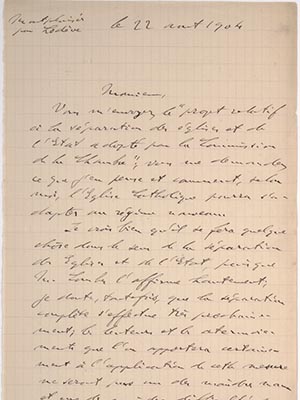 le 22 aout 1904
Monsieur,
Vous m'envoyez le "projet relatif
à la séparation des églises et de
l'Etat adopté par la Commission
de la Chambre", vous me demandez
ce que j'en pense et comment, selon
moi, l'Eglise Catholique pourra s'a-
dapter au régime nouveau.
Je crois bien qu'il se fera quelque
chose dans le sens de la séparation
des Eglises et de l'Etat, puisque
M. Combes l'affirme hautement,
je doute, toutefois, que la séparation
complète s'effectue très prochaine-
ment; les lenteurs et les atermoie-
ments que l'on apportera certaine-
ment à l'application de cette mesure
ne seront pas un des moindres